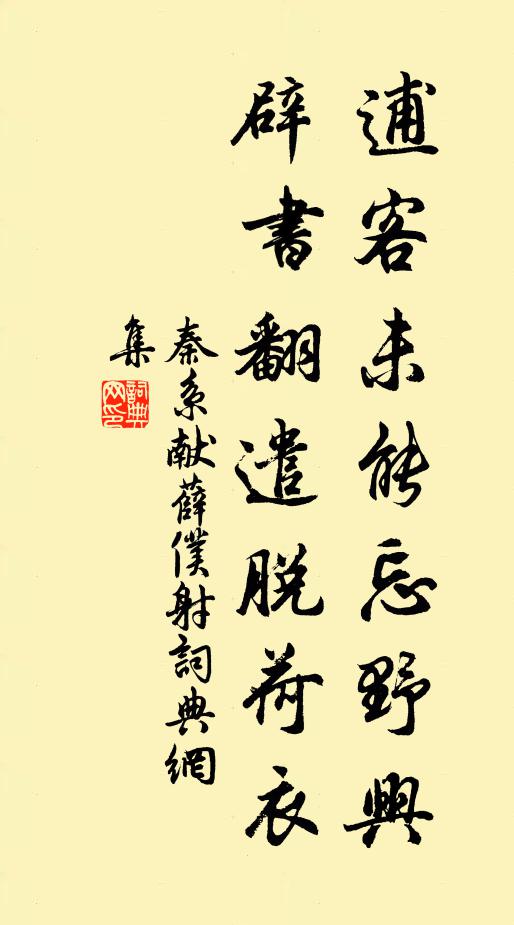 逋客未能忘野興
辟書翻遣脱荷衣
秦系献薛僕射詞典網
集
詞典
网印